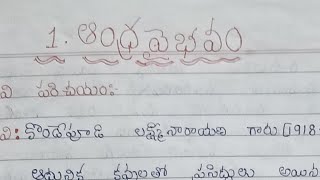 1. ఆంధ్రవైభవం
వి పరిచయం:
వి: కొండేపూడి లక్ష్మీనారాయణ గారు [1918-
ఆధునిక కవులతో ప్రసిద్ధులు అయిన